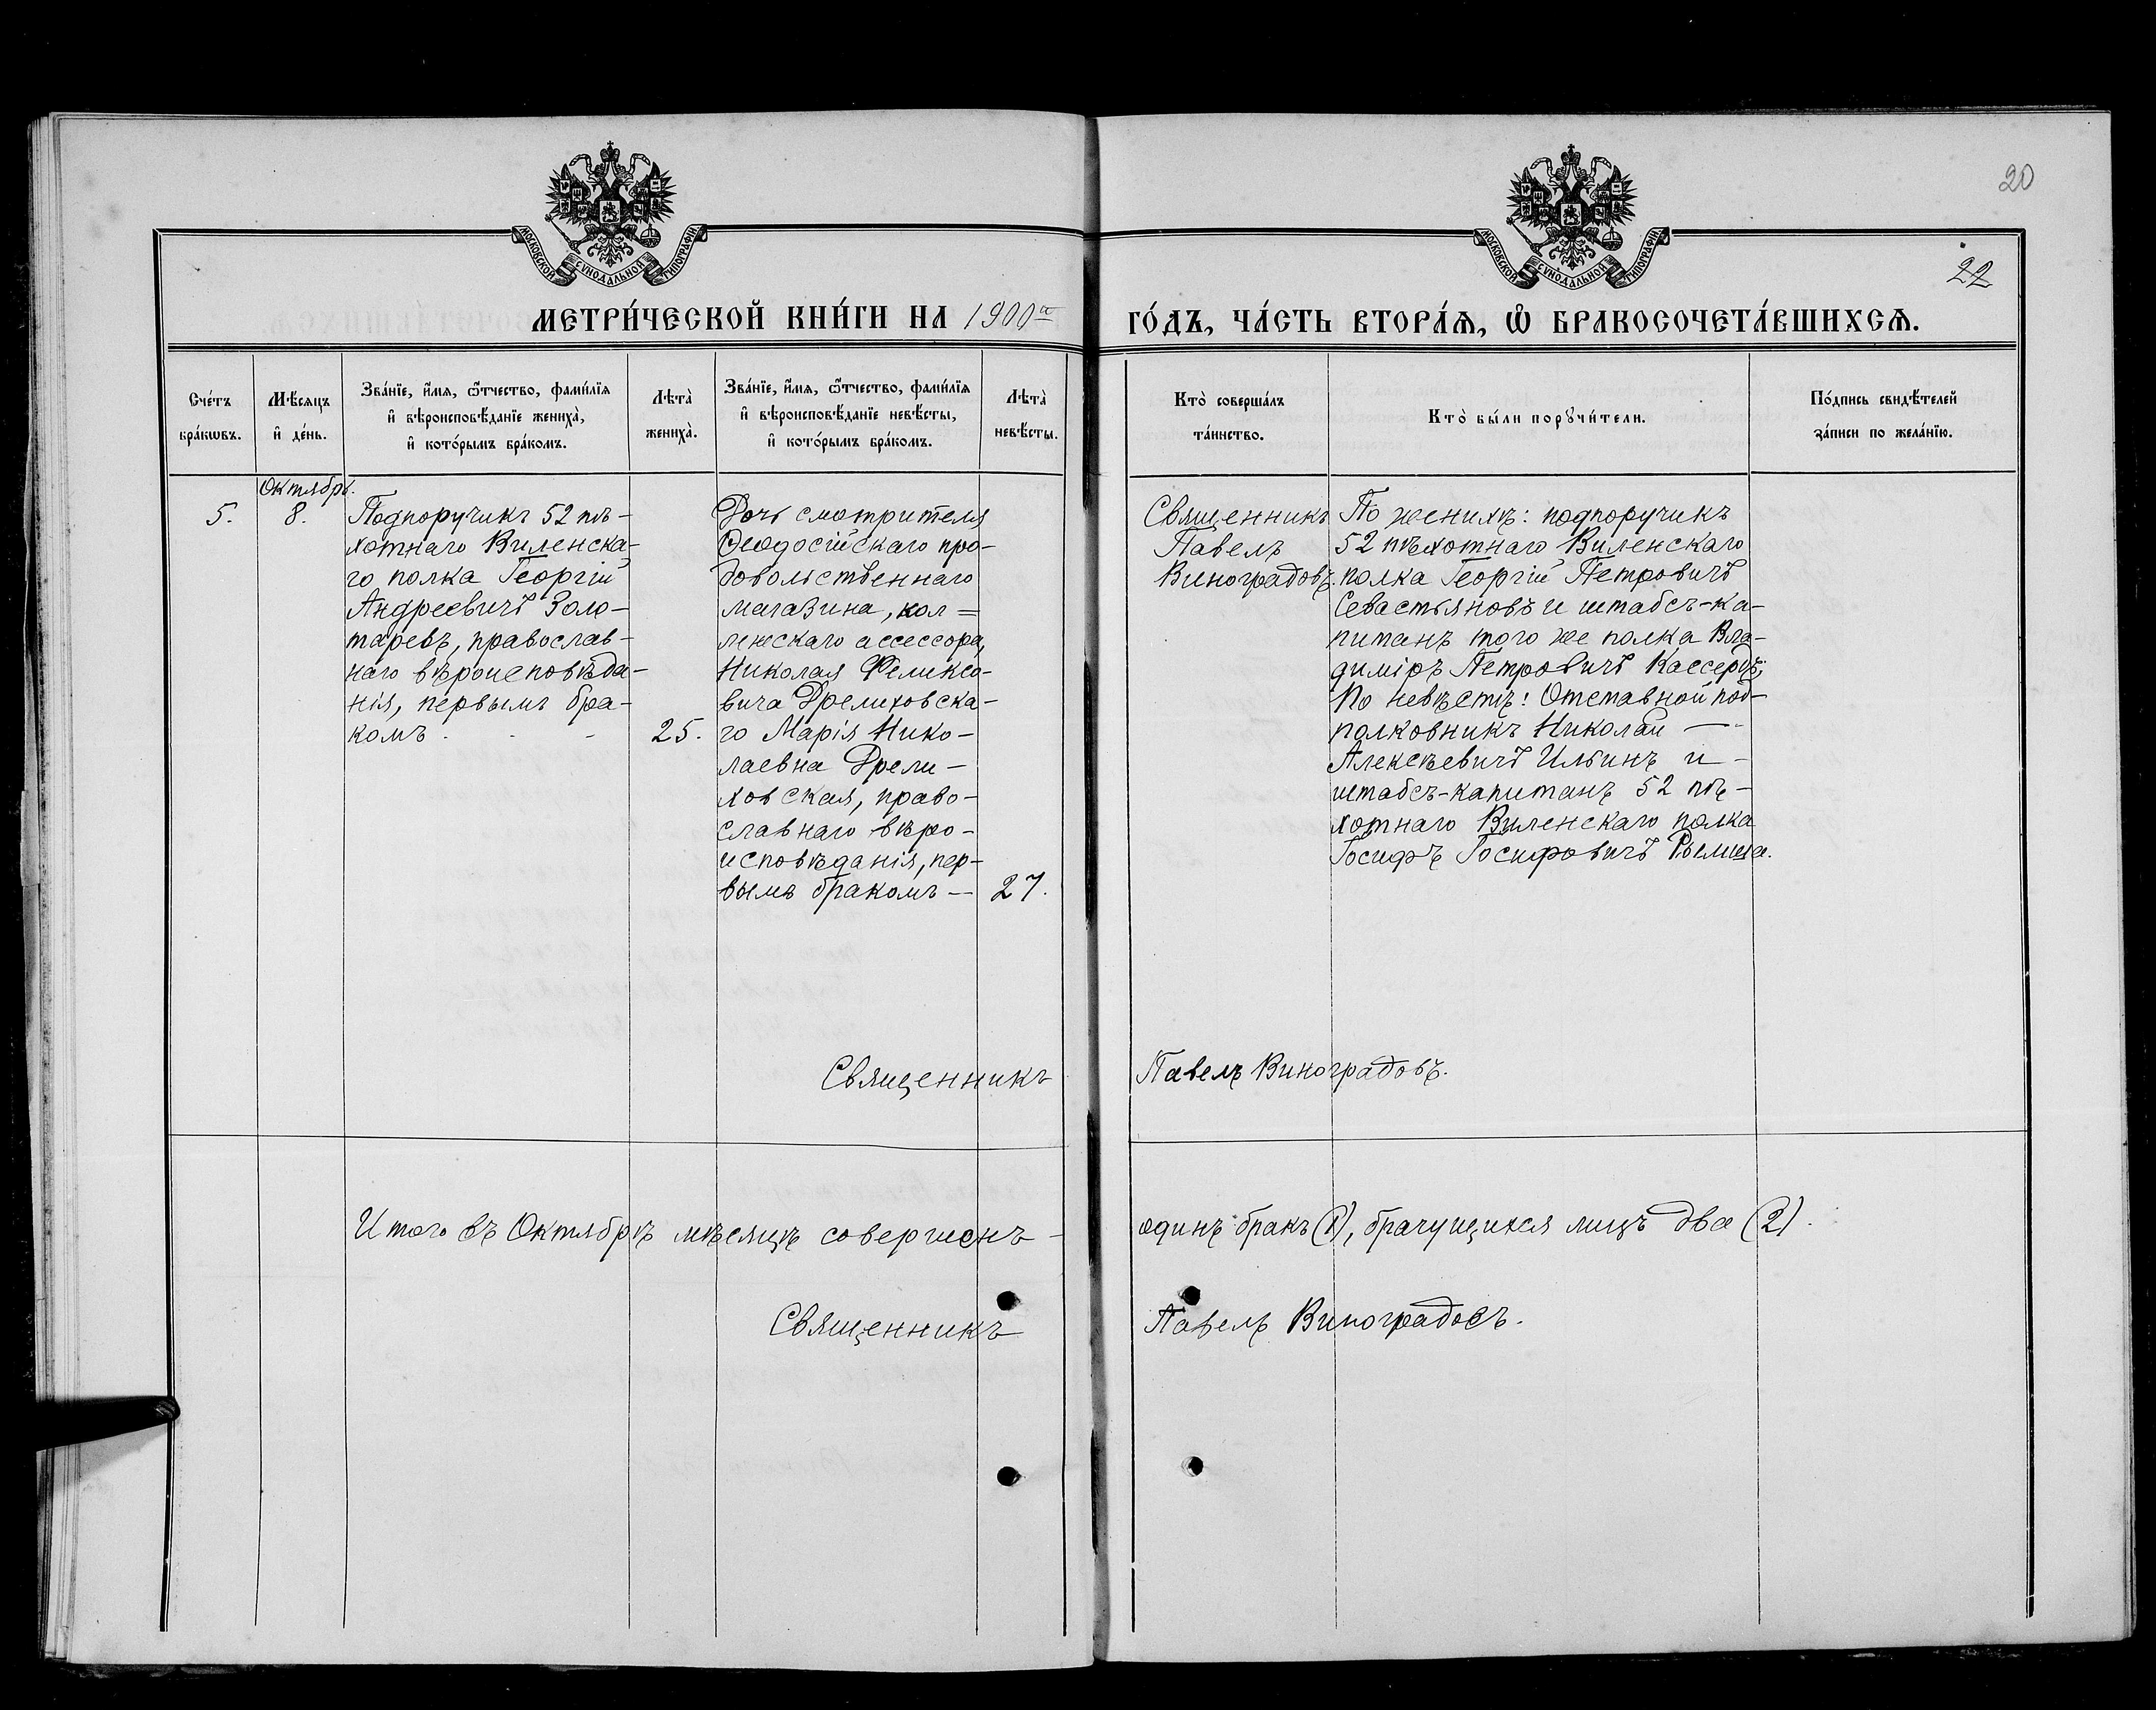 20
22
МОСКОВСКОЙ СѴНОДАЛЬНОЙ ТИПОГРАФІИ
МОСКОВСКОЙ СѴНОДАЛЬНОЙ ТИПОГРАФІИ
МЕТРИ́ЧЕСКОЙ КНИ́ГИ НА 1900й
ГО́ДЪ, ЧА́СТЬ ВТОРА́Ѧ, Ѽ БРАКОСОЧЕТА́ВШИХСѦ.
Сче́тъ
бра́кωвъ.
Мѣ́сяцъ
и҆ де́нь.
Зва́нїе, и҆́мя, ѻ҆́тчество, фами́лїя
и҆ вѣроисповѣ́данїе жениха̀,
и҆ кото́рымъ бра́комъ.
Лѣта̀
жениха̀.
Зва́нїе, и҆́мя, ѻ҆́тчество, фами́лїя
и҆ вѣроисповѣ́данїе невѣ́сты,
и҆ кото́рымъ бра́комъ.
Лѣта̀
невѣ́сты.
Кто̀ соверша́лъ
та́инство.
Кто̀ бы́ли порꙋчи́тели.
По́дпись свидѣ́телей
за́писи по жела́нїю.
5.
Октябрь.
8.
Подпоручикъ 52 пѣ-
хотнаго Виленска-
го полка Георгій
Андреевичъ Золо-
таревъ, православ-
наго вѣроисповѣда-
нія, первымъ бра-
комъ
25.
Дочь смотрителя
Ѳеодосійскаго про-
довольственнаго
магазина, кол=
лежскаго ассессора,
Николая Феликсо-
вича Дрелиховска-
го Марія Нико-
лаевна Дрели-
ховская, право-
славнаго вѣро-
исповѣданія, пер-
вымъ бракомъ —
27.
Священникъ
Павелъ
Виноградовъ.
По женихѣ: подпоручикъ
52 пѣхотнаго Виленскаго
полка Георгій Петровичъ
Севастьяновъ и штабсъ-ка-
питанъ того же полка Вла-
диміръ Петровичъ Кассеръ;
По невѣстѣ: Отставной под-
полковникъ Николай —
Алексѣевичъ Ильинъ и -
штабсъ-капитанъ 52 пѣ-
хотнаго Виленскаго полка
Іосифъ Іосифовичъ Рымша.
Священникъ Павелъ Виноградовъ.
Итого въ Октябрѣ мѣсяцѣ совершенъ - одинъ бракъ (1), брачущихся лицъ два (2).
Священникъ Павелъ Виноградовъ.